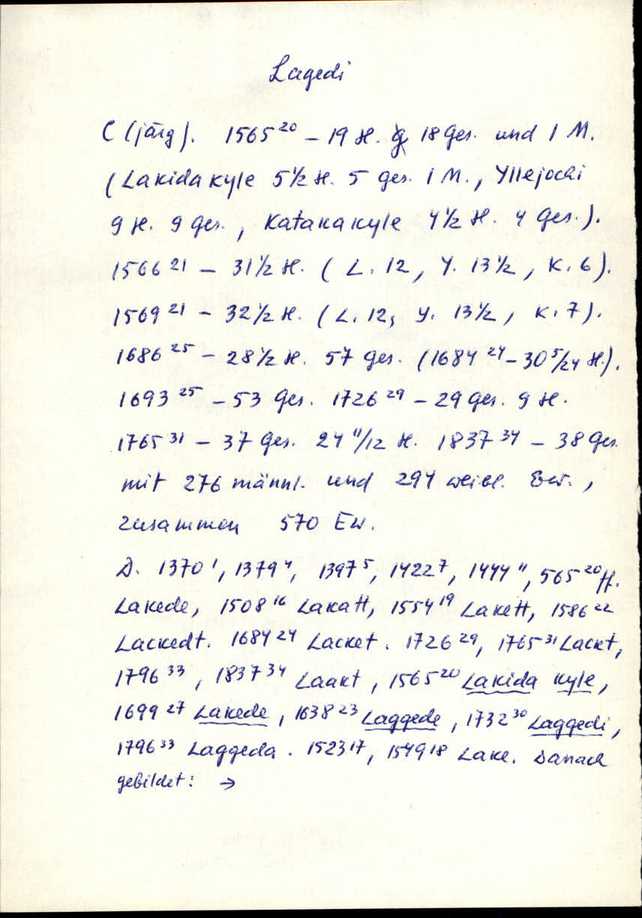 Lagedi
C (järg). 1565²⁰ – 19 H. 18 Ges. und 1 M.
(Lakida kyle 5½ H. 5 ges. 1 M., Yllejochi
9 H. 9 ges., Katanakyle 4½ H. 4 Ges.).
1566²¹ – 31½ H. (L. 12, Y. 13½, K. 6).
1569²¹ – 32½ H. (L. 12, Y. 13½, K. 7).
1686²⁵ – 28½ H. 57 Ges. (1684²⁴ – 30 5/24 H.).
1693²⁵ – 53 Ges. 1726²⁹ – 29 Ges. 9 H.
1765³¹ – 37 Ges. 24 11/12 H. 1837³⁴ – 38 Ges.
mit 276 männl. und 294 weibl. Ew.,
zusammen 570 Ew.
D. 1370¹, 1379⁴, 1397⁵, 1422⁷, 1444¹¹, 565²⁰ff.
Lakede, 1508¹⁶ Lakatt, 1554¹⁹ Lakett, 1586²²
Lackedt. 1684²⁴ Lacket. 1726²⁹, 1765³¹ Lackt,
1796³³, 1837³⁴ Laakt, 1565²⁰ Lakida kyle,
1699²⁷ Lakede, 1638²³ Laggede, 1732³⁰ Laggedi,
1796³³ Laggeda. 1523¹⁷, 1549¹⁸ Lake. Danach
gebildet: →